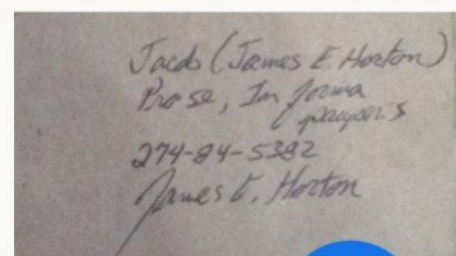 Jacob (James E. Horton)
Pro se, In forma
pauper.s
274-84-5382
James E. Horton